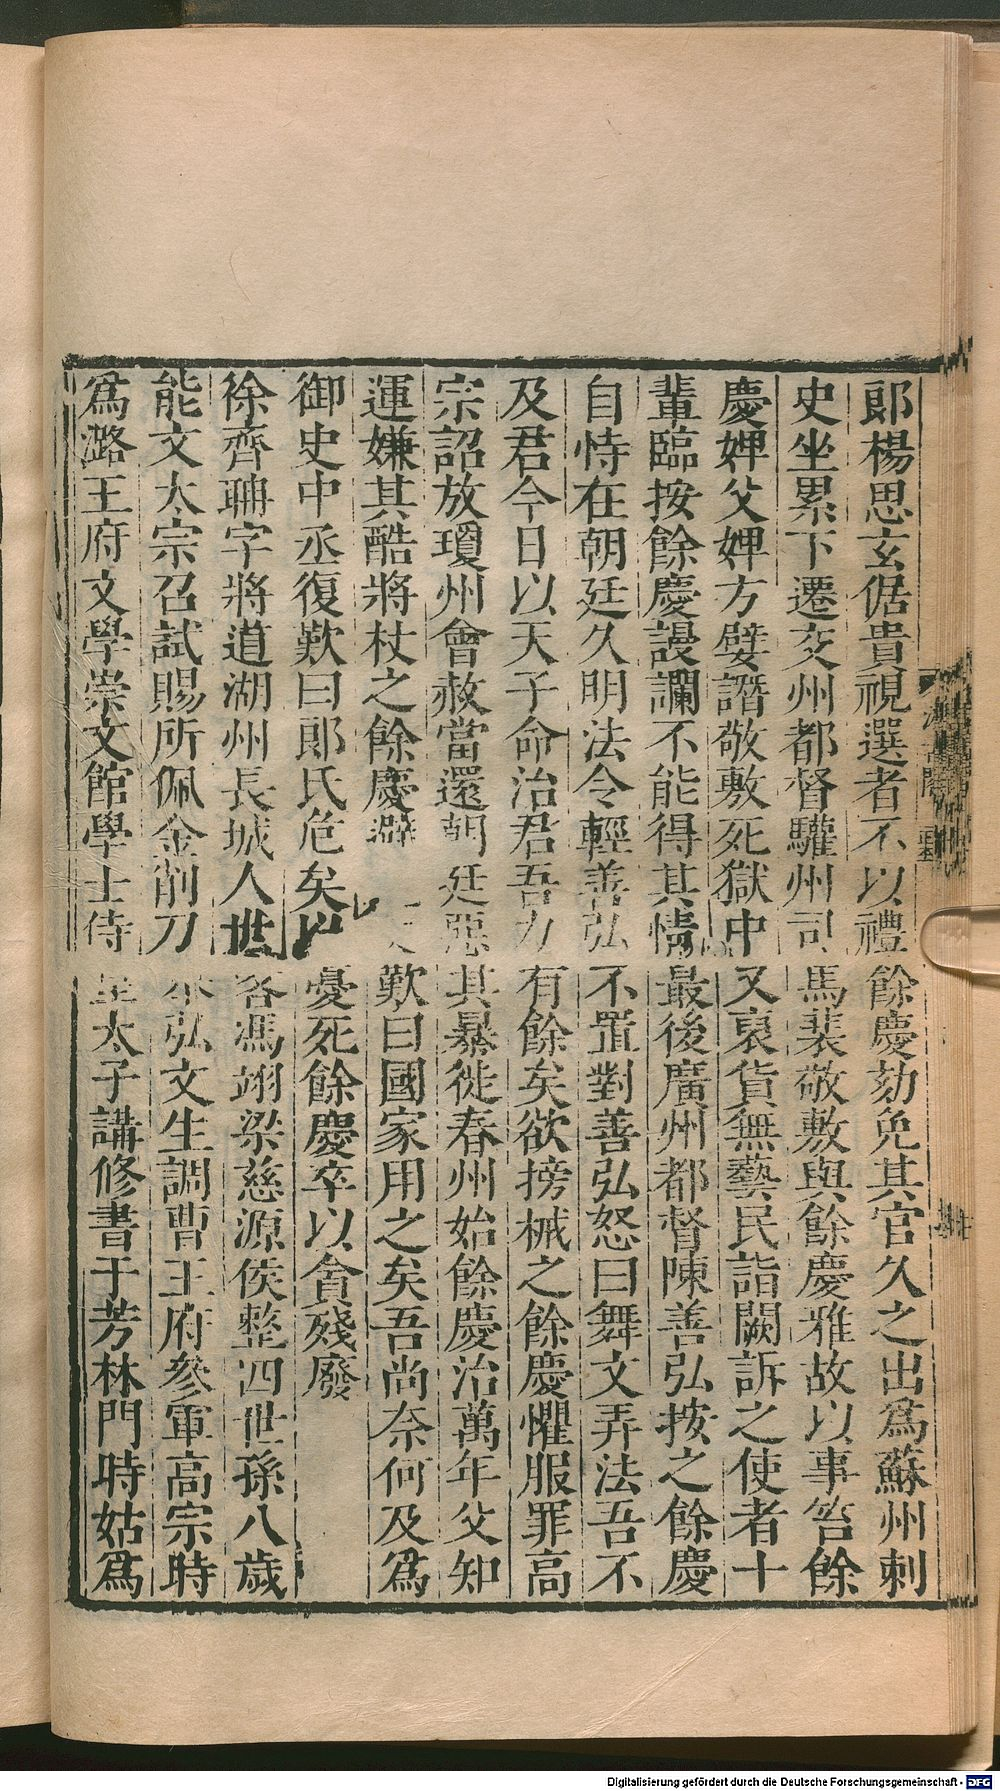 郎楊思玄倨貴視選者不以禮餘慶劾免其官久之出爲蘇州刺
史坐累下遷交州都督驩州司馬裴敬敷與餘慶雅故以事笞餘
慶婢父婢方嬖譖敬敷死獄中又裒貨無藝民詣闕訴之使者十
輩臨按餘慶謾讕不能得其情最後廣州都督陳善弘按之餘慶
自恃在朝廷久明法令輕善弘不置對善弘怒曰舞文弄法吾不
及君今日以天子命治君吾力有餘矣欲搒械之餘慶懼服罪高
宗詔放瓊州會赦當還朝廷惡其暴徙春州始餘慶治萬年父知
運嫌其酷將杖之餘慶避 歎曰國家用之矣吾尚奈何及爲
御史中丞復歎曰郎氏危矣以憂死餘慶卒以貪殘廢
徐齊聃字將道湖州長城人世客馮翊梁慈源侯整四世孫八歲
能文太宗召試賜所佩金削刀 弘文生調曹王府參軍高宗時
爲潞王府文學崇文館學士侍皇太子講修書于芳林門時姑爲
Digitalisierung gefördert durch die Deutsche Forschungsgemeinschaft - DFG